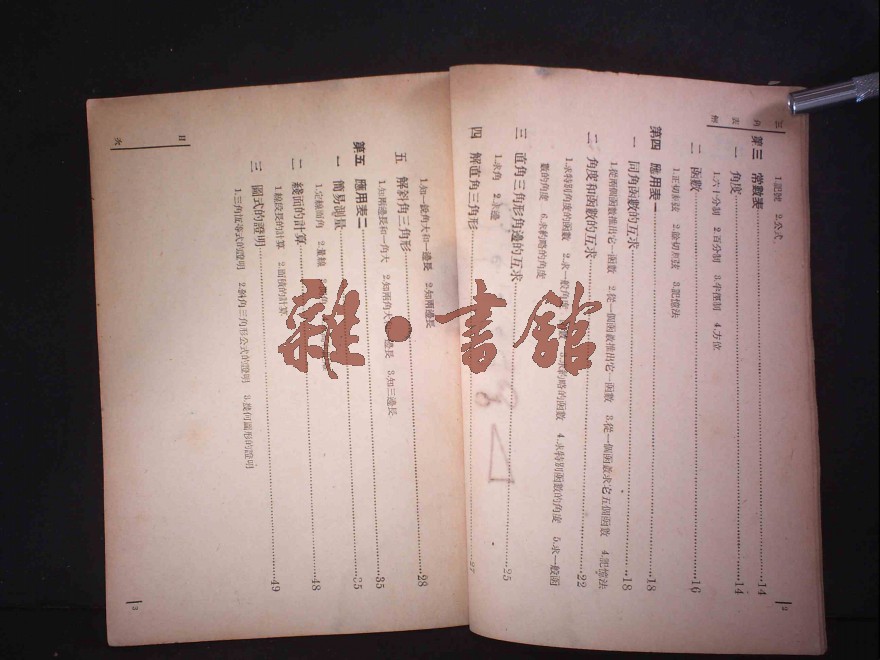 三角表解
1.記號 2.公式
第三 常數表……14
一 角度……14
1.六十分制 2.百分制 3.半徑制 4.方位
二 函數……16
1.正切求法 2.餘切求法 3.記憶法
第四 應用表一……18
一 同角函數的互求……18
1.從兩個函數推出它一函數 2.從一個函數推出它一函數 3.從一個函數求它五個函數 4.記憶法
二 角度和函數的互求……22
1.求特別角度的函數 2.求一般角度 3.求約略的函數 4.求特別函數的角度 5.求一般函
數的角度 6.求約略的角度
三 直角三角形角邊的互求……25
1.求角 2.求邊
四 解直角三角形……27
2
1.知一銳角大和一邊長 2.知兩邊長
五 解斜角三角形……28
1.知兩邊長和一角大 2.知兩角大 邊長 3.知三邊長
第五 應用表二……35
一 簡易測量……35
1.定線面角 2.量線
二 綫面的計算……48
1.線段長的計算 2.面積的計算
三 圖式的證明……49
1.三角恆等式的證明 2.斜角三角形公式的證明 3.幾何圖形的證明
目次
3
雜·書館